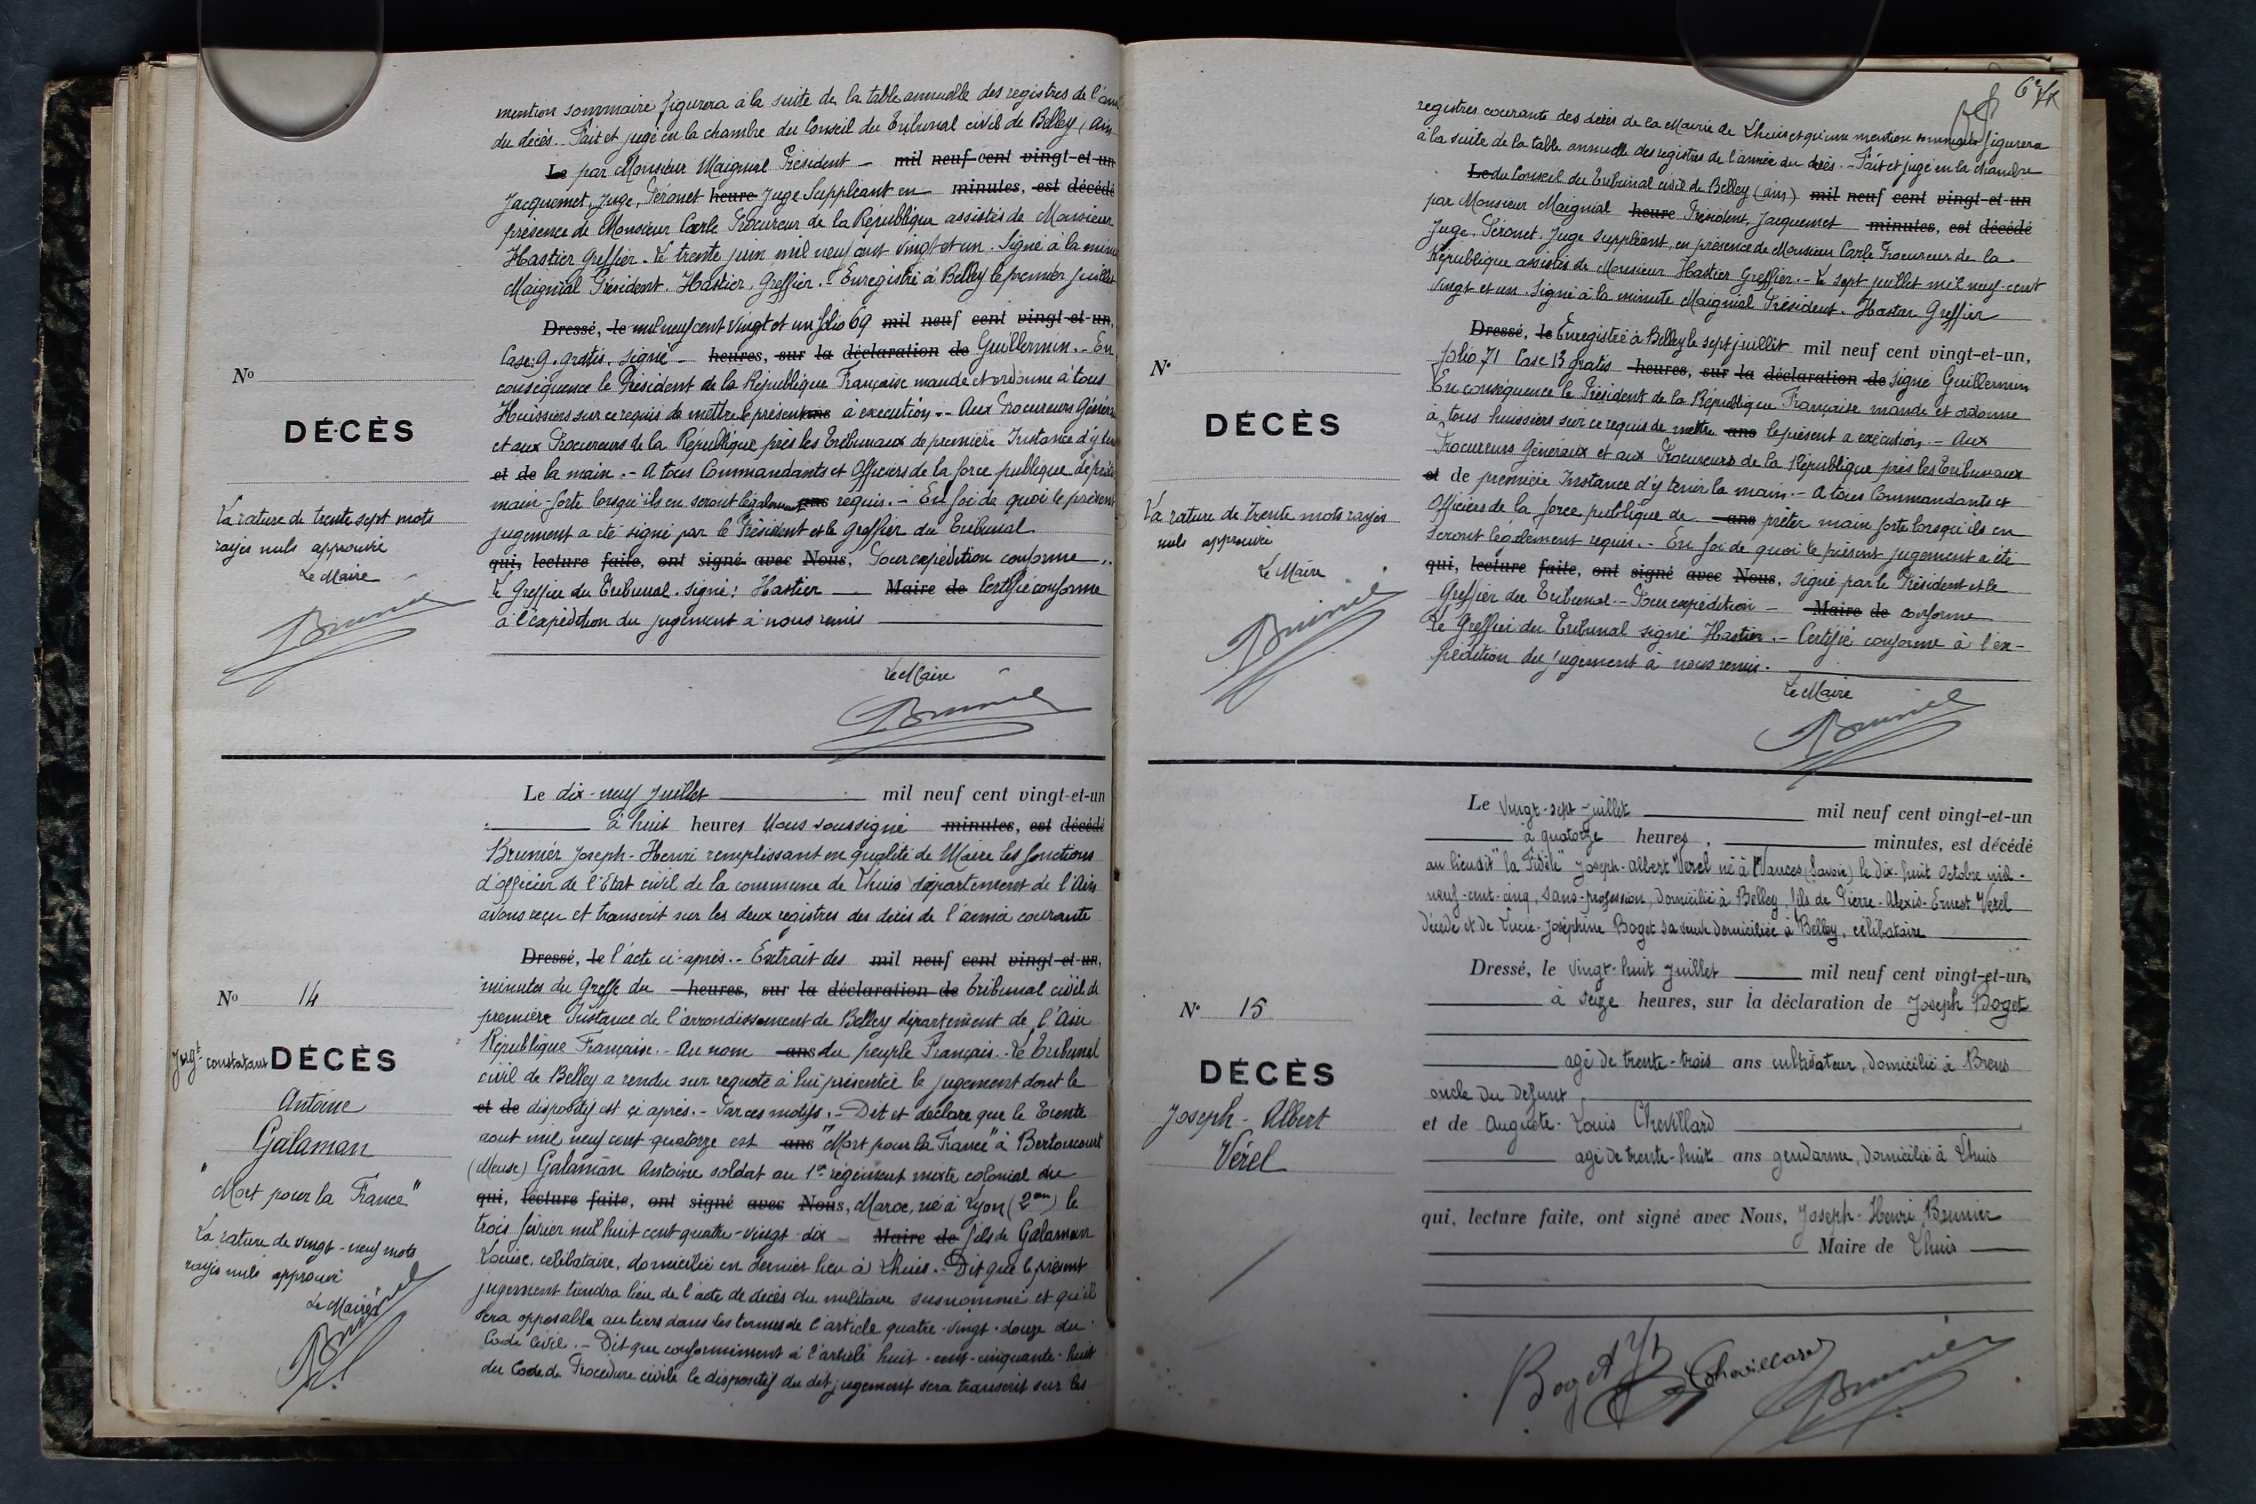 mention sommaire figurera à la suite de la table annuelle des registres de l'année
du décès. Fait et jugé en la chambre du Conseil du Tribunal civil de Belley (Ain
Le par Monsieur Maignial Président — mil neuf cent vingt-et-un
Jacquemet, Juge, Péronet heure Juge Suppléant en minutes, est décédé
présence de Monsieur Carle Procureur de la République assistés de Monsieur
Hastier Greffier. Le trente juin mil neuf cent vingt et un. Signé à la minute
Maignial Président. Hastier, Greffier. Enregistré à Belley le premier Juillet
Dressé, le mil neuf cent vingt et un folio 69 mil neuf cent vingt-et-un,
Case: 9. gratis. Signé — heures, sur la déclaration de Guillermin. - En
conséquence le Président de la République Française mande et ordonne à tous
Huissiers sur ce requis de mettre le présent ans à exécution. - Aux Procureurs Généraux
et aux Procureurs de la République près les Tribunaux de première Instance d'y tenir
et de la main. - A tous Commandants et Officiers de la force publique de prêter
main-forte lorsqu'ils en seront légalement ans requis. - En foi de quoi le présent
jugement a été signé par le Président et le Greffier du Tribunal
qui, lecture faite, ont signé avec Nous, Pour expédition conforme
Le Greffier du Tribunal. signé: Hastier — Maire de Certifié conforme
à l'expédition du jugement à nous remis
Le Maire
Brunier
No
DÉCÈS
La rature de trente sept mots
rayés nuls approuvée
Le Maire
Brunier
Le dix-neuf Juillet mil neuf cent vingt-et-un
à huit heures Nous soussigné minutes, est décédé
Brunier Joseph-Henri remplissant en qualité de Maire les fonctions
d'officier de l'Etat civil de la commune de Lhuis département de l'Ain
avons reçu et transcrit sur les deux registres des décès de l'année courante
Dressé, le l'acte ci-après. - Extrait des mil neuf cent vingt-et-un,
minutes du Greffe du heures, sur la déclaration de tribunal civil de
première Instance de l'arrondissement de Belley département de l'Ain
République Française. - Au nom ans du peuple Français. - Le Tribunal
civil de Belley a rendu sur requête à lui présentée le jugement dont le
et de dispositif est ci après. - Par ces motifs. - Dit et déclare que le trente
aout mil neuf cent quatorze est ans "Mort pour la France" à Bertoncourt
(Meuse) Galaman Antoine soldat au 1er régiment mixte colonial du
qui, lecture faite, ont signé avec Nous, Maroc, né à Lyon (2em) le
trois février mil huit cent quatre-vingt-dix — Maire de fils de Galaman
Louise, célibataire, domicilié en dernier lieu à Lhuis. - Dit que le présent
jugement tiendra lieu de l'acte de décès du militaire susnommé et qu'il
sera opposable au tiers dans les termes de l'article quatre-vingt-douze du
Code Civil. - Dit que conformément à l'article huit-cent-cinquante-huit
du Code de Procédure civile le dispositif du dit jugement sera transcrit sur les
No 14
Jugt constatant DÉCÈS
Antoine
Galaman
"Mort pour la France"
La rature de vingt-neuf mots
rayés nuls approuvée
Le Maire
Brunier
6e
registres courants des décès de la Mairie de Lhuis et qu'une mention sommaire figurera
à la suite de la table annuelle des registres de l'année du décès. - Fait et jugé en la chambre
Le du Conseil du Tribunal civil de Belley (Ain) mil neuf cent vingt-et-un
par Monsieur Maignial heure Président, Jacquemet minutes, est décédé
Juge, Péronet, Juge suppléant, en présence de Monsieur Carle Procureur de la
République assistés de Monsieur Hastier Greffier. - Le sept juillet mil neuf cent
vingt et un. Signé à la minute Maignial Président. Hastier Greffier
Dressé, le Enregistré à Belley le sept juillet mil neuf cent vingt-et-un,
folio 71 Case 13 gratis heures, sur la déclaration de signé Guillermin
En conséquence le Président de la République Française mande et ordonne
à tous huissiers sur ce requis de mettre ans le présent à exécution. - Aux
Procureurs Généraux et aux Procureurs de la République près les Tribunaux
et de première Instance d'y tenir la main. - A tous Commandants et
Officiers de la force publique de ans prêter main forte lorsqu'ils en
seront légalement requis. - En foi de quoi le présent jugement a été
qui, lecture faite, ont signé avec Nous, signé par le Président et le
Greffier du Tribunal. - Pour expédition — Maire de conforme
Le Greffier du Tribunal signé Hastier. - Certifié conforme à l'ex-
pédition du jugement à nous remis.
Le Maire
Brunier
No
DÉCÈS
La rature de trente mots rayés
nuls approuvée
Le Maire
Brunier
Le vingt-sept Juillet mil neuf cent vingt-et-un
à quatorze heures, minutes, est décédé
au lieudit "la Fidèle" Joseph-Albert Verel né à (Savoie) le dix-huit octobre mil-
neuf-cent-cinq, sans profession, domicilié à Belley, fils de Pierre-Alexis-Ernest Verel
décédé et de Lucie-Joséphine Boget sa veuve domiciliée à Belley, célibataire
Dressé, le vingt-huit Juillet mil neuf cent vingt-et-un,
à seize heures, sur la déclaration de Joseph Boget
agé de trente-trois ans cultivateur, domicilié à Brens
oncle du défunt
et de Auguste-Louis Chevillard
agé de trente-huit ans gendarme, domicilié à Lhuis
qui, lecture faite, ont signé avec Nous, Joseph-Henri Brunier
Maire de Lhuis
No 15
DÉCÈS
Joseph-Albert
Vérel
Boget Jh Chevillard Brunier